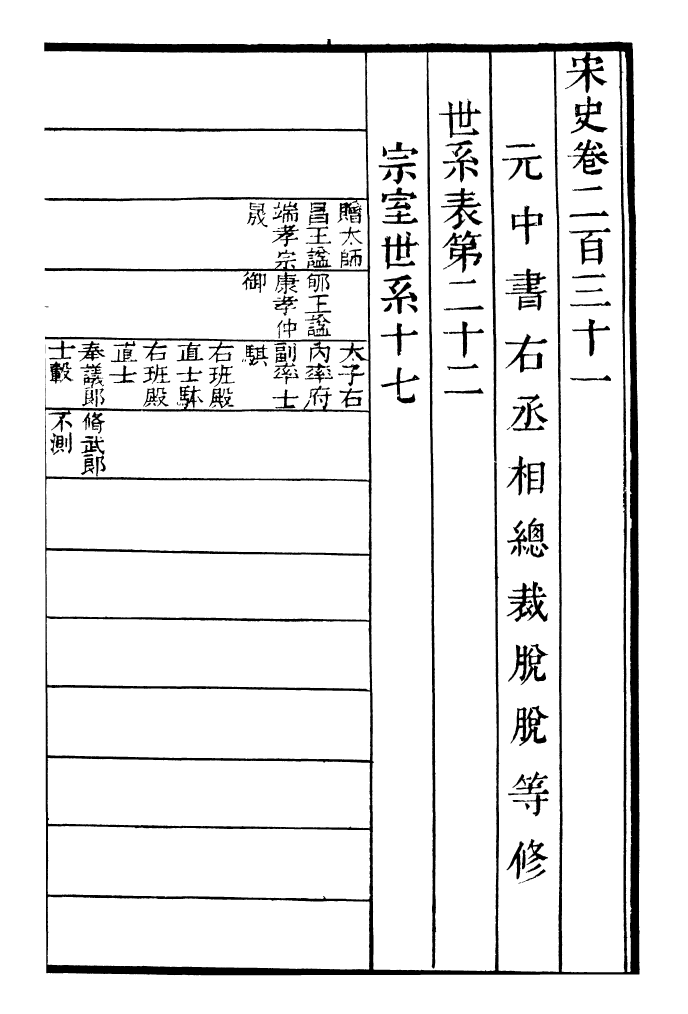 宋史卷二百三十一
元中書右丞相總裁脫脫等修
世系表第二十二
宗室世系十七
贈太師
昌王諡
端孝宗
晟
郇王諡
康孝仲
御
太子右
內率府
副率士
騏
右班殿
直士䮂
右班殿
直士
奉議郎
士轂
脩武郎
不測